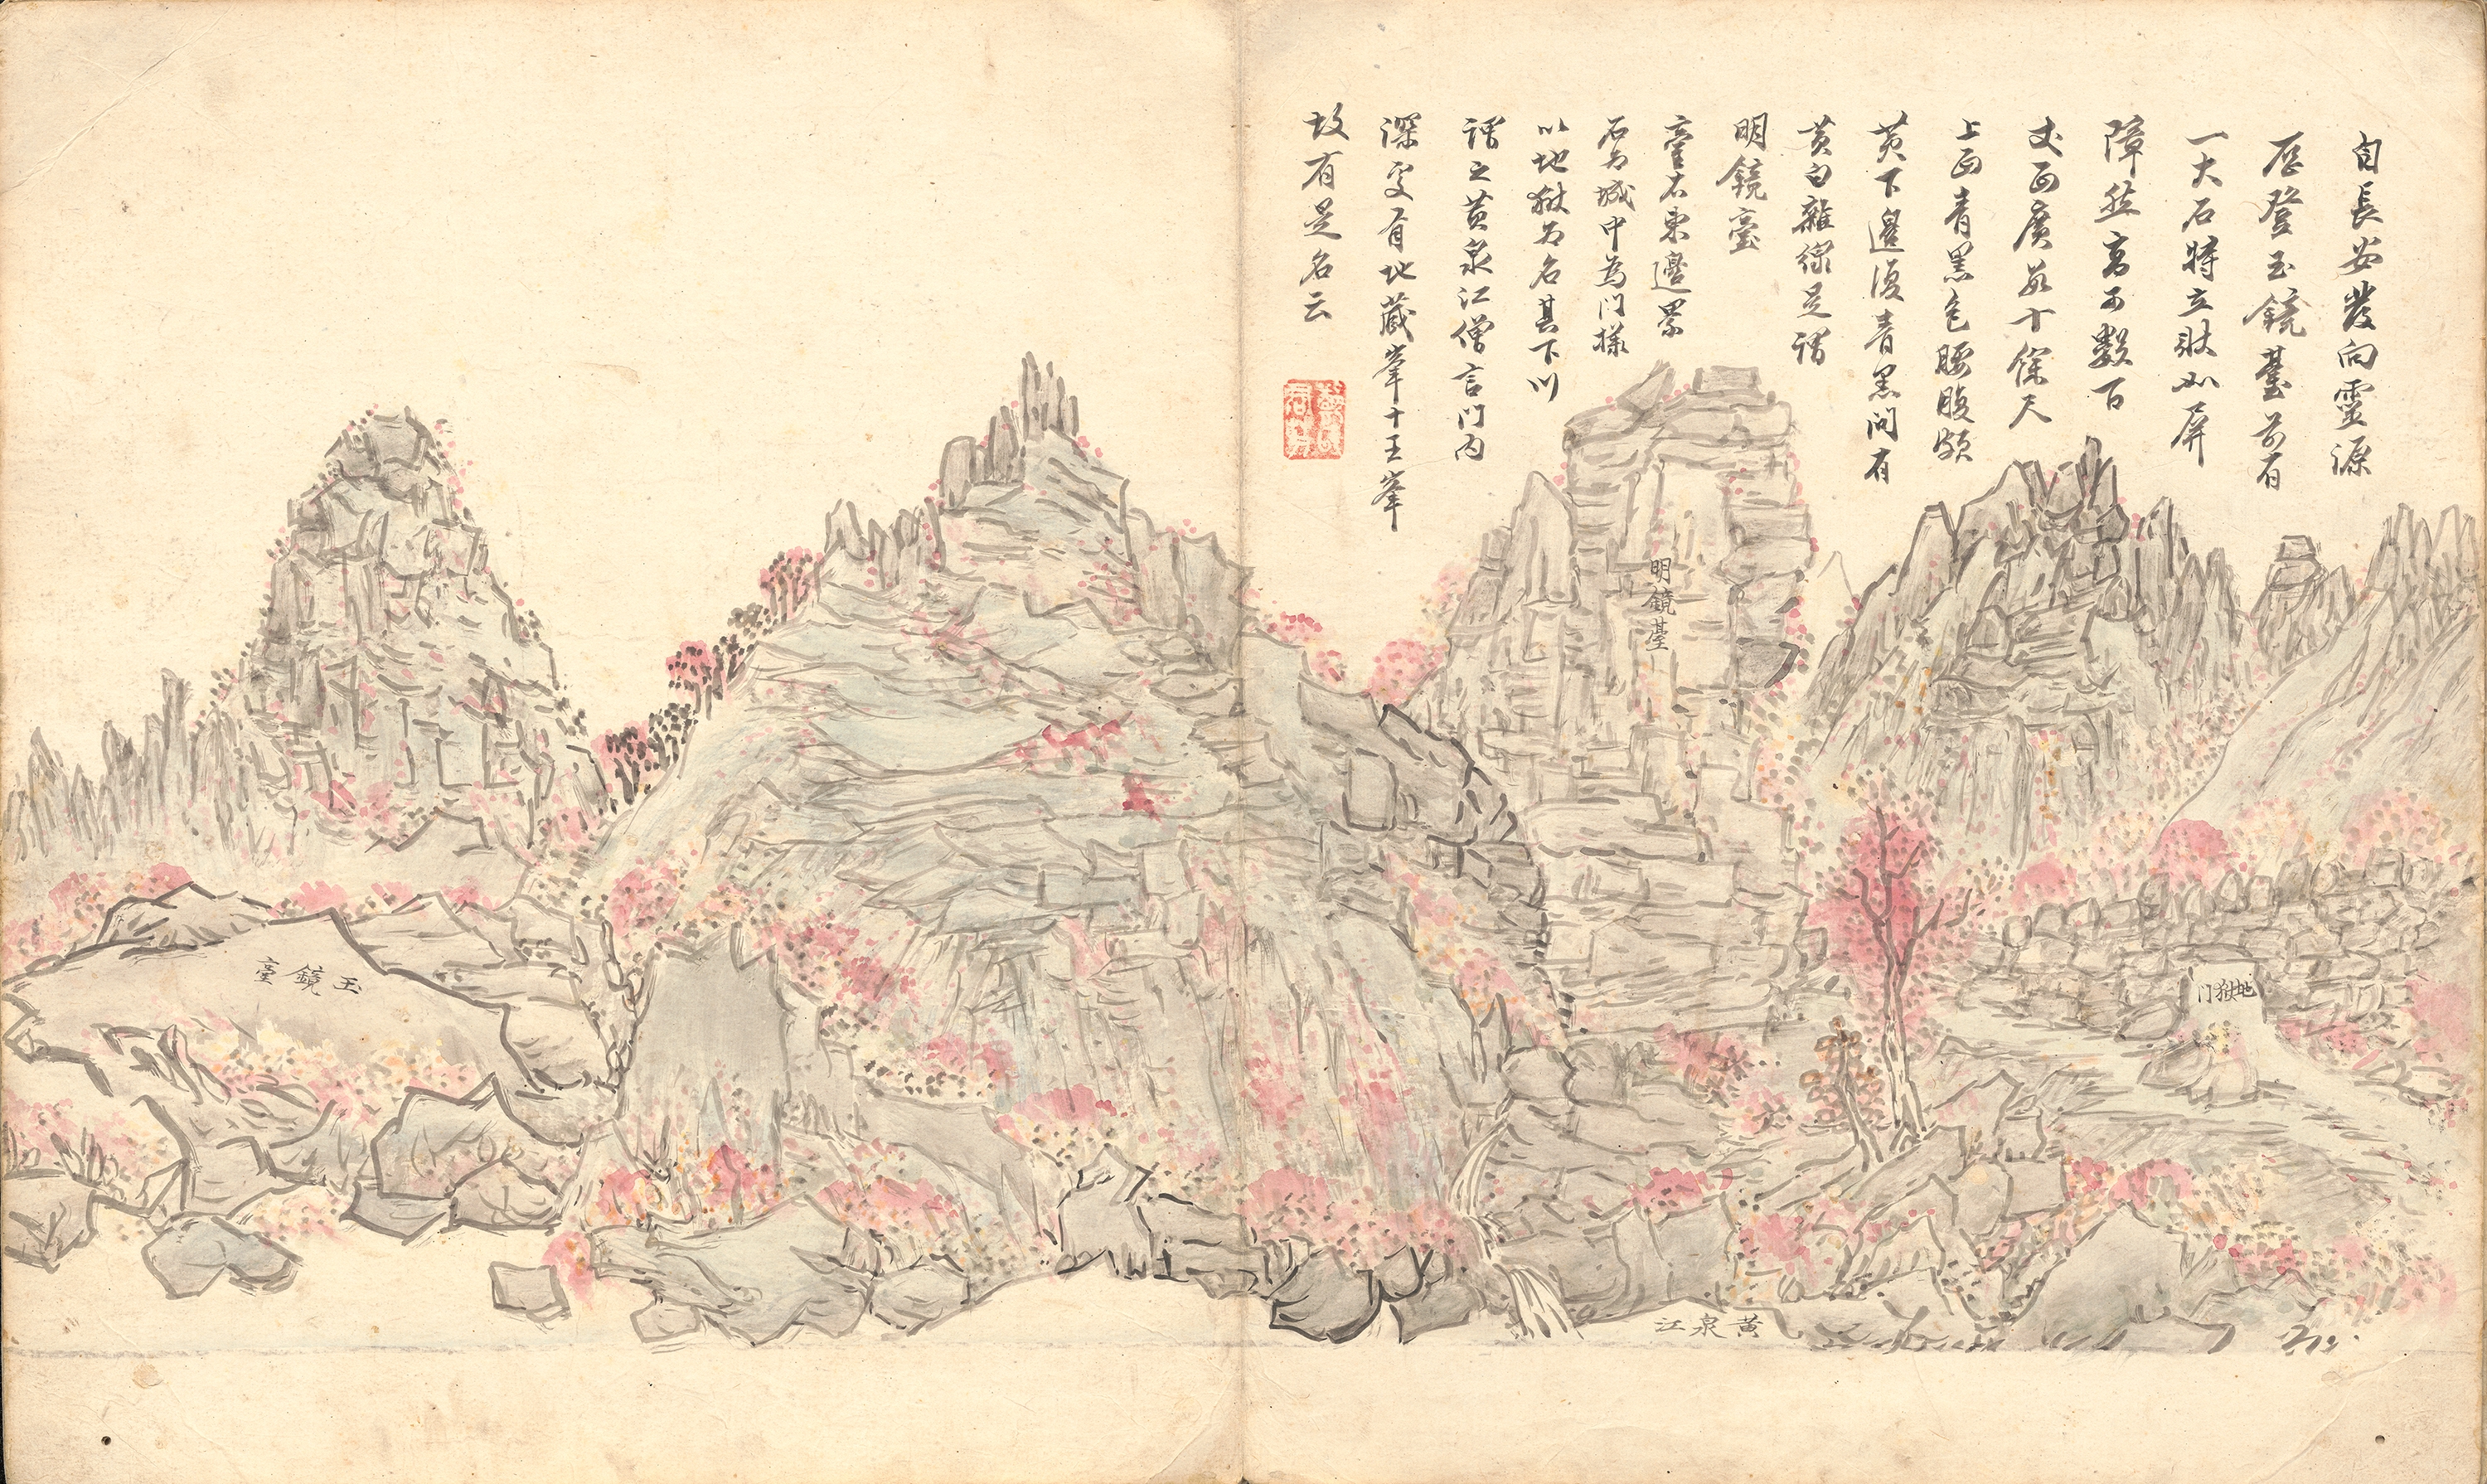 自長安發向靈源
歷登玉鏡臺前有
一大石特立狀如屏
障然高可數百
丈面廣數十餘尺
上面青黑色腰腹頗
黃下邊復青黑間有
黃白雜綠是謂
明鏡臺
臺右東邊累
石为城中為门樣
以地獄为名其下川
謂之黃泉江僧言门內
深處有地藏峯十王峯
故有是名云
明鏡臺
地獄门
黃泉江
玉鏡臺